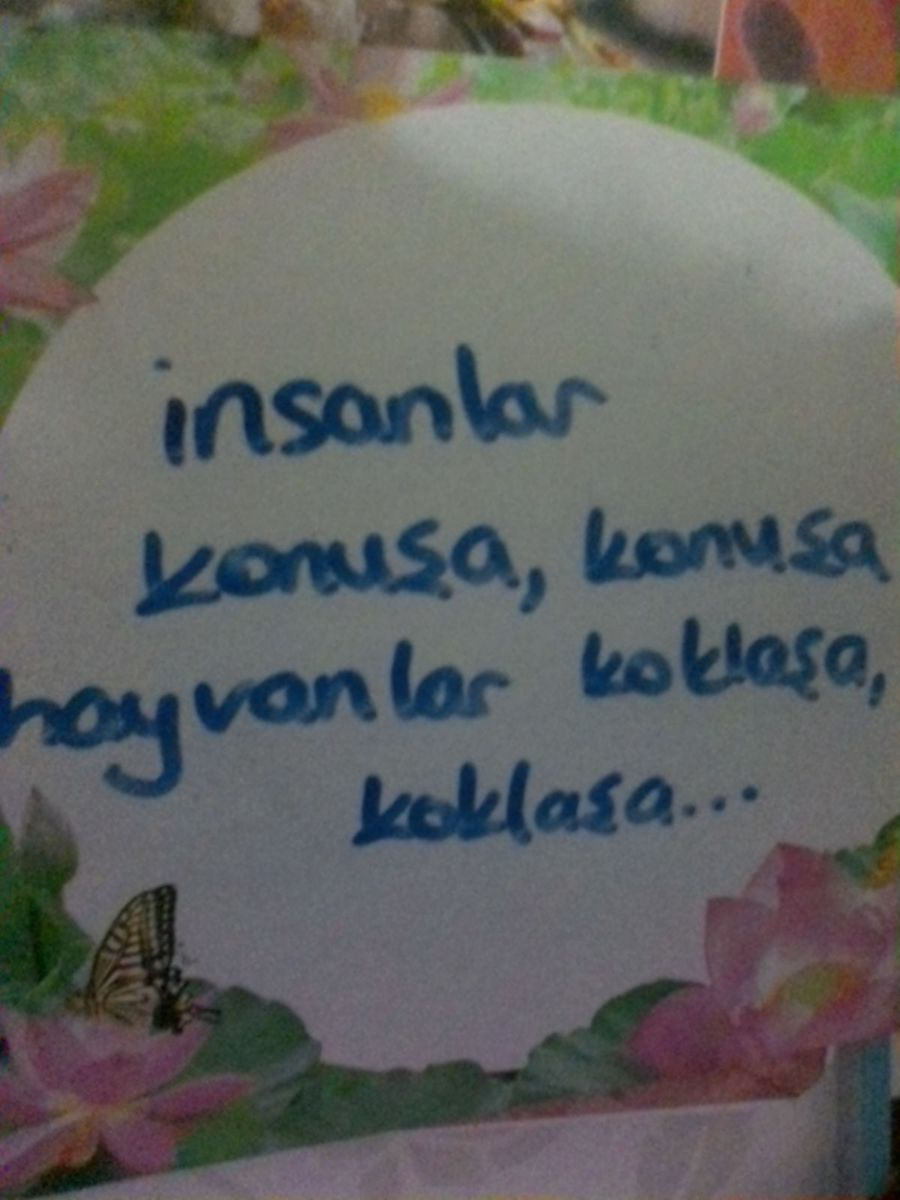 insanlar
konuşa, konuşa
hayvanlar koklaşa,
koklaşa...